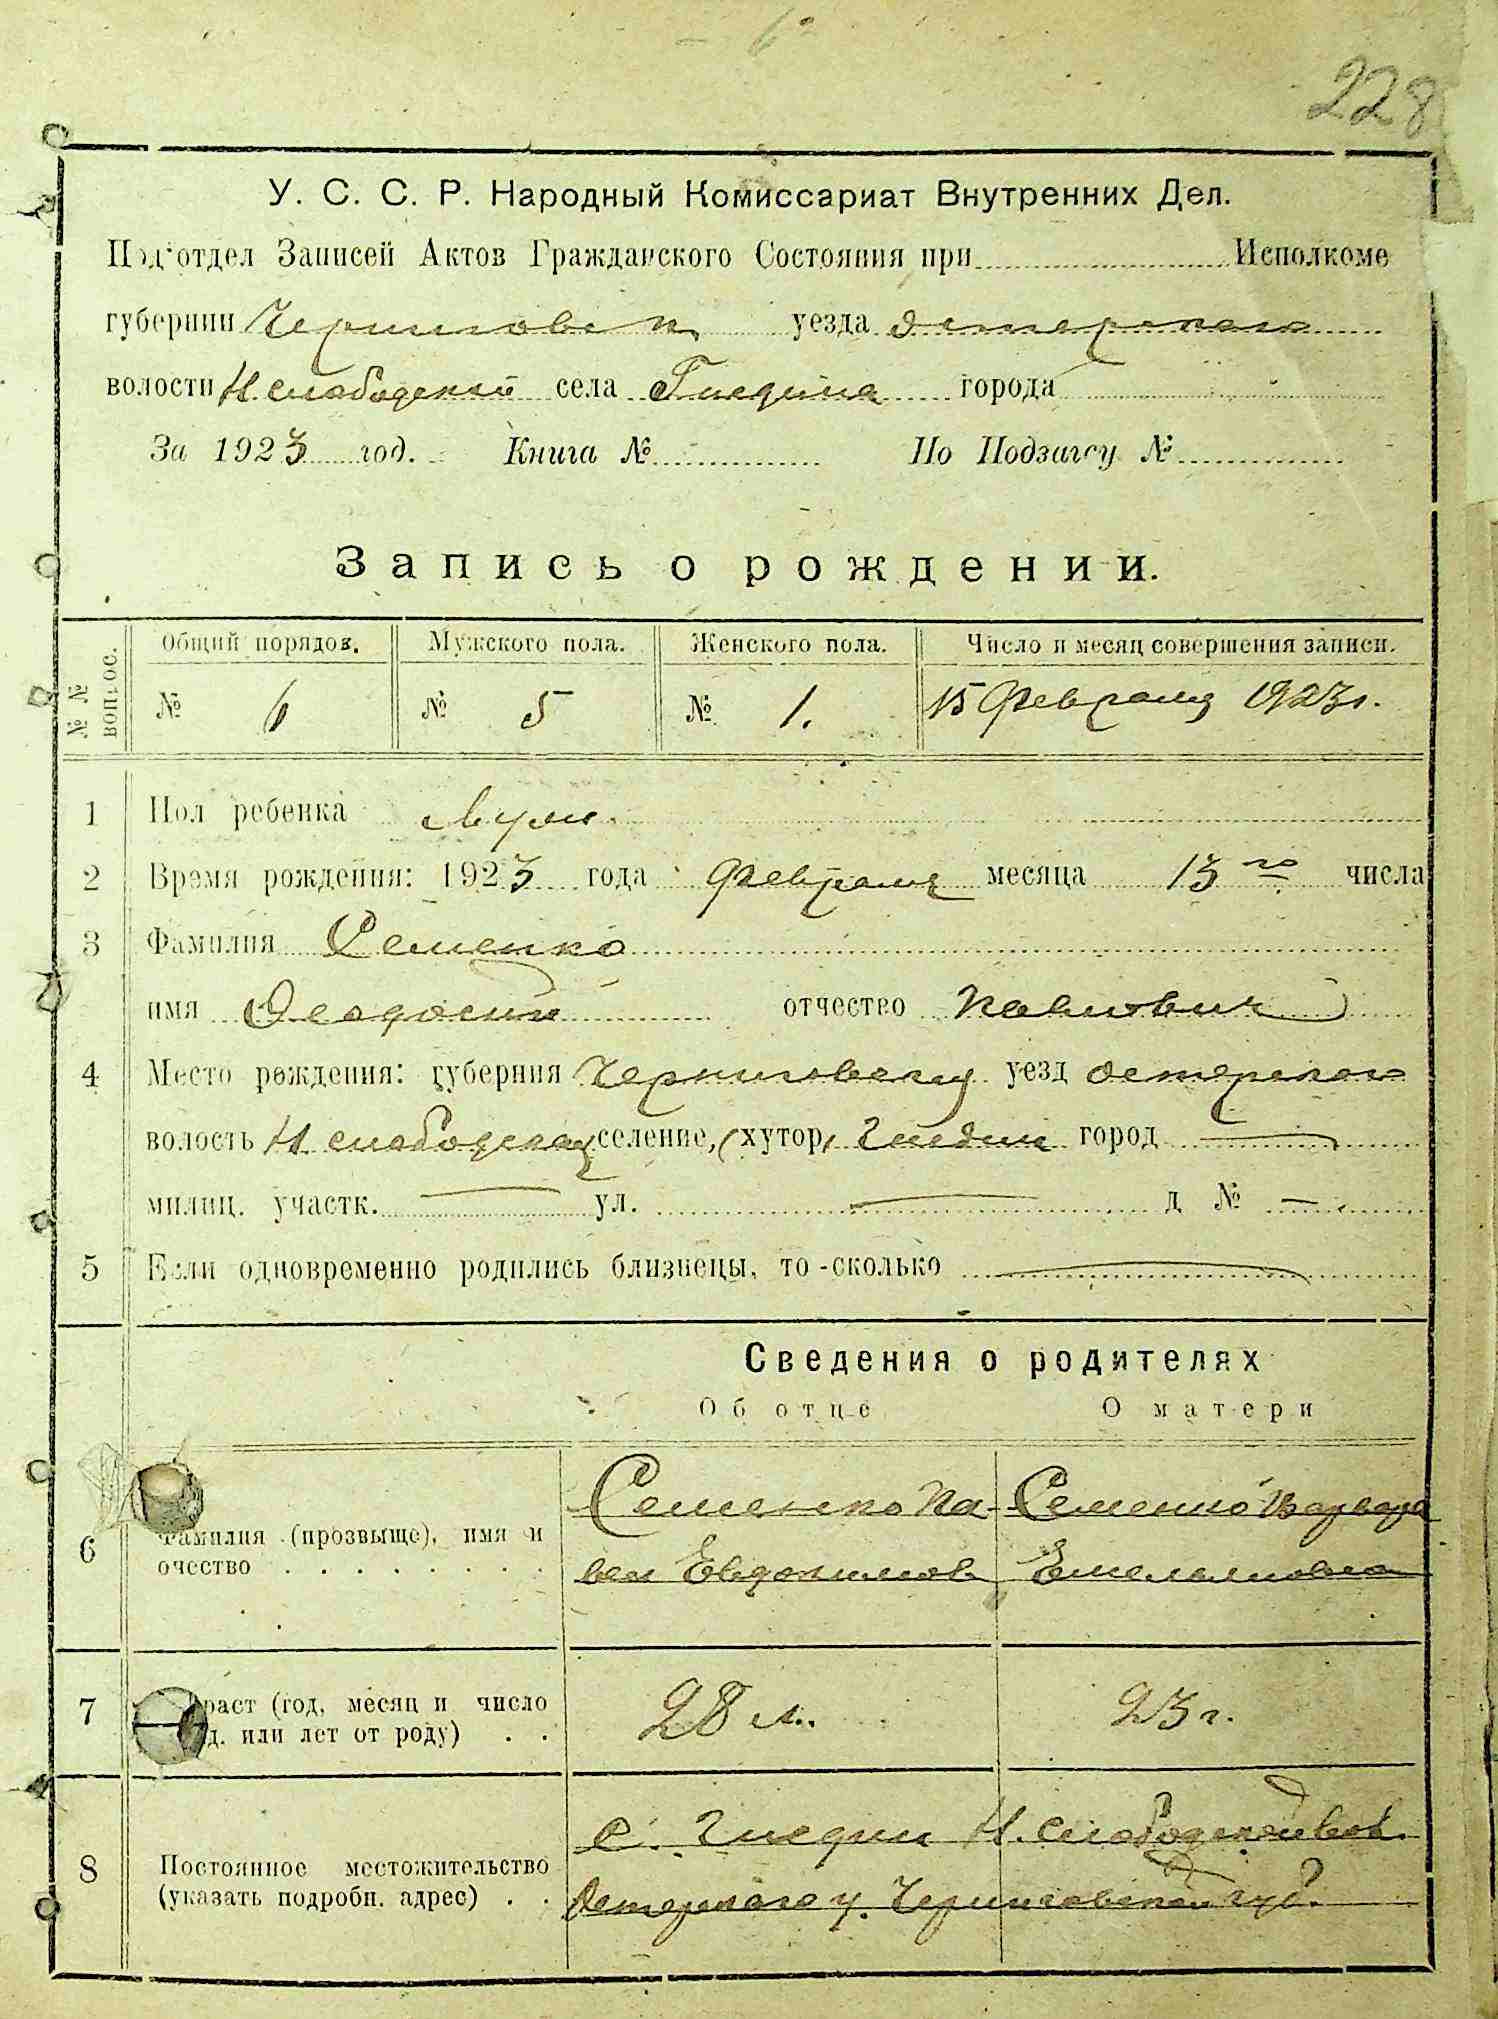 228
У. С. С. Р. Народный Комиссариат Внутренних Дел.
Под'отдел Записей Актов Гражданского Состояния при Исполкоме
губернии Черниговск. уезда Остерского
волости Н. слободской села Гнедина города
За 1923 год. Книга № По Подзагсу №
Запись о рождении.
№ № вопрос. Общий порядов. Мужского пола. Женского пола. Число и месяц совершения записи.
№ 6 № 5 № 1. 15 Февраля 1923 г.
1 Пол ребенка Муж.
2 Время рождения: 1923 года Февраля месяца 13го числа
3 Фамилия Семенко
имя Феодосий отчество Павлович
4 Место рождения: губерния Черниговская уезд Остерского
волость Н. слободская селение, (хутор) Гнедин город —
милиц. участк. — ул. — д № —
5 Если одновременно родились близнецы, то-сколько —
Сведения о родителях
Об отце О матери
Семенко Па- Семенко Варвара
6 Фамилия (прозвыще), имя и
очество вел Евдокимов Емельяновна
7 раст (год, месяц и число 28 л. 23 г.
д. или лет от роду)
с. Гнедин Н. слободской вол.
8 Постоянное местожительство
(указать подробн. адрес) Остерского у. Черниговской губ.